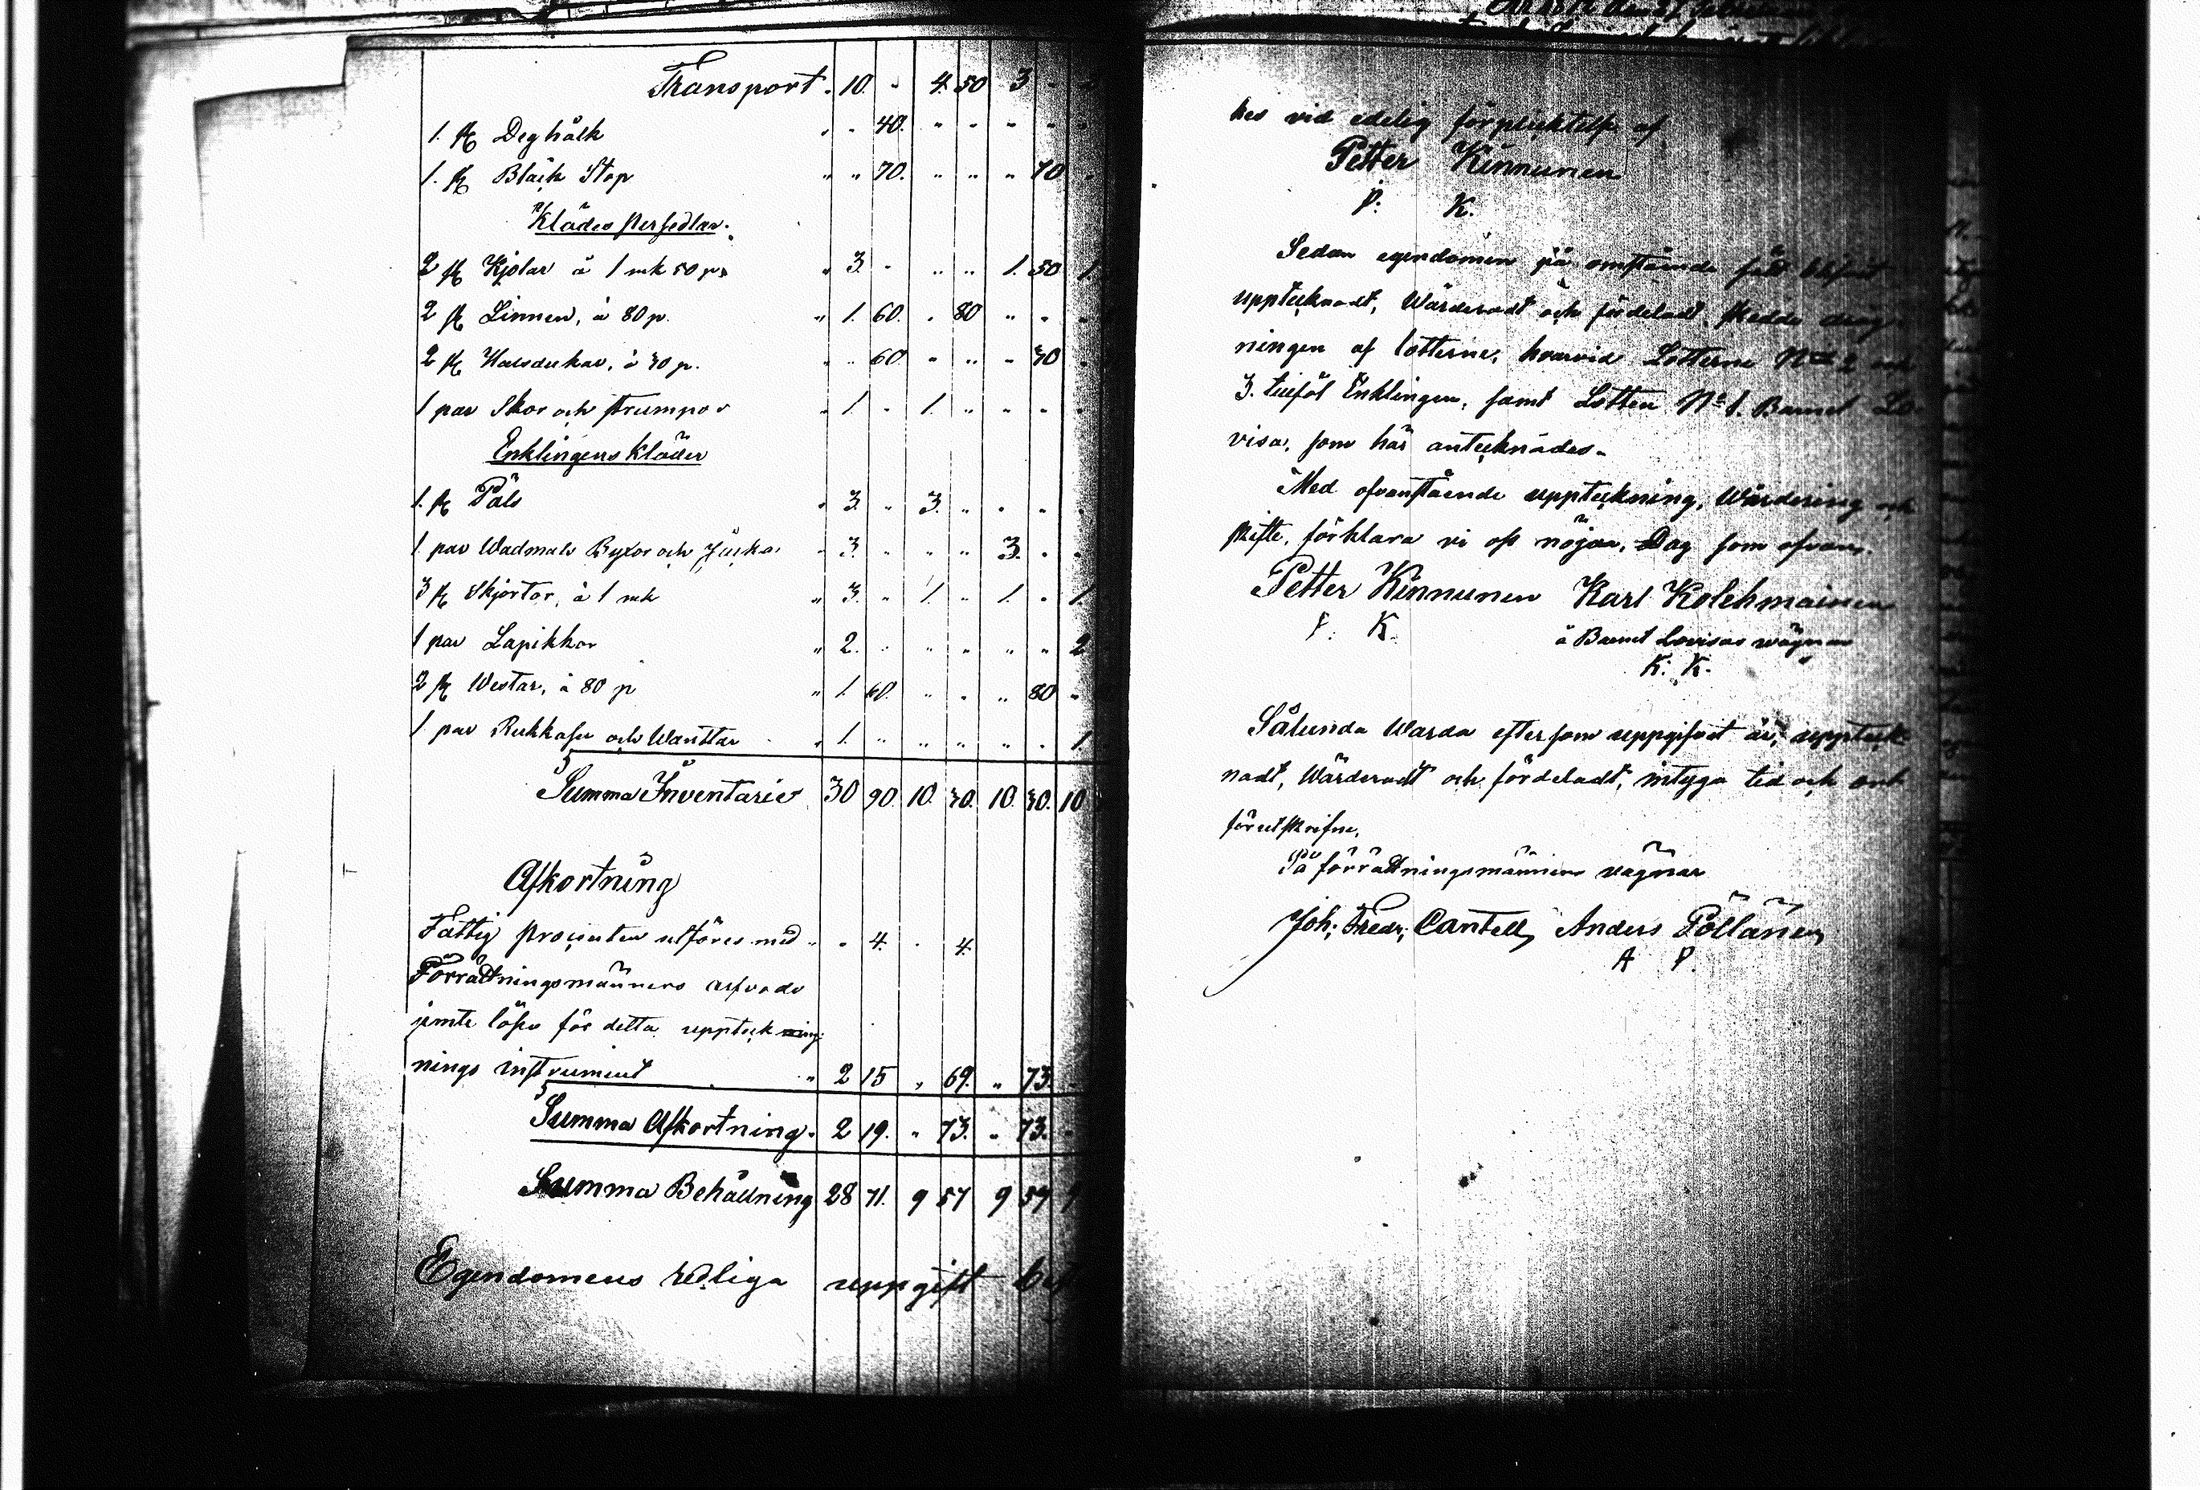 Transport „ 10. „ 4. 50 3 „ „
1. st Deghålk „ „ 40. „ „ „ „ „
1. st Bläck Stop „ „ 70. „ „ „ 70 „
Klädes persedlar.
2 st Kjolar à 1 mk 50 p:s „ 3. „ „ „ 1. 50 1.
2 st Linnen, à 80 p. „ 1. 60. „ 80 „ „ „
2 st Halsdukar, à 30 p. „ „ 60. „ „ „ 30
1 par Skor och strumpor „ 1. „ 1. „ „ „ „
Enklingens Kläder
1. st Päls „ 3. „ 3. „ „ „ „
1. par Wadmals Byxor och „ 3. „ „ „ 3. „ „
3 st Skjortor, à 1 mk „ 3. „ 1. „ 1. „ 1.
1 par Lapikkar „ 2. „ „ „ „ „ 2
2 st Westar, à 80 p „ 1. 60. „ „ „ 80 „
1 par Rukkaser och Wanttar „ 1. „ „ „ „ „ 1
Summa Inventarie 30 90. 10. 30. 10. 30. 10
Afkortning
Fattig procenten utföres med „ „ 4. „ 4.
Förrättningsmännens arfvode
jemte lösen för detta uppteck
nings instrument „ 2 15 „ 69. „ 73. „
Summa Afkortning. 2 19. „ 73. „ 73. „
Summa Behållning 28 71. 9 57 9 57 9
Egendomens redliga uppgift bef
kes vid edelig förpliktelse af
Petter Kinnunen
P. K.
Sedan egendomen på omstående sätt blifvit
upptecknadt, Wärderadt och fördeladt, skedde drag-
ningen af lotterne, hvarvid Lotterne N:o 2 och
3. tillföl Enklingen, samt Lotten N:o 1. Barnet Lo-
visa, som här antecknades.
Med ofvanstående uppteckning, Wärdering och
skifte, förklara vi oss nöjda, Dag som ofvan.
Petter Kinnunen Karl Kolehmainen
P. K. å Barnet Lovisas wägnar
K. K.
Sålunda Warda efter som uppgifvet är, uppteck-
nadt, Wärderadt och fördeladt, intyga tid och ort
förutskrifne,
På förrättningsmännens vägnar
Joh; Fredr; Cantell, Anders Pöllänen
A P.